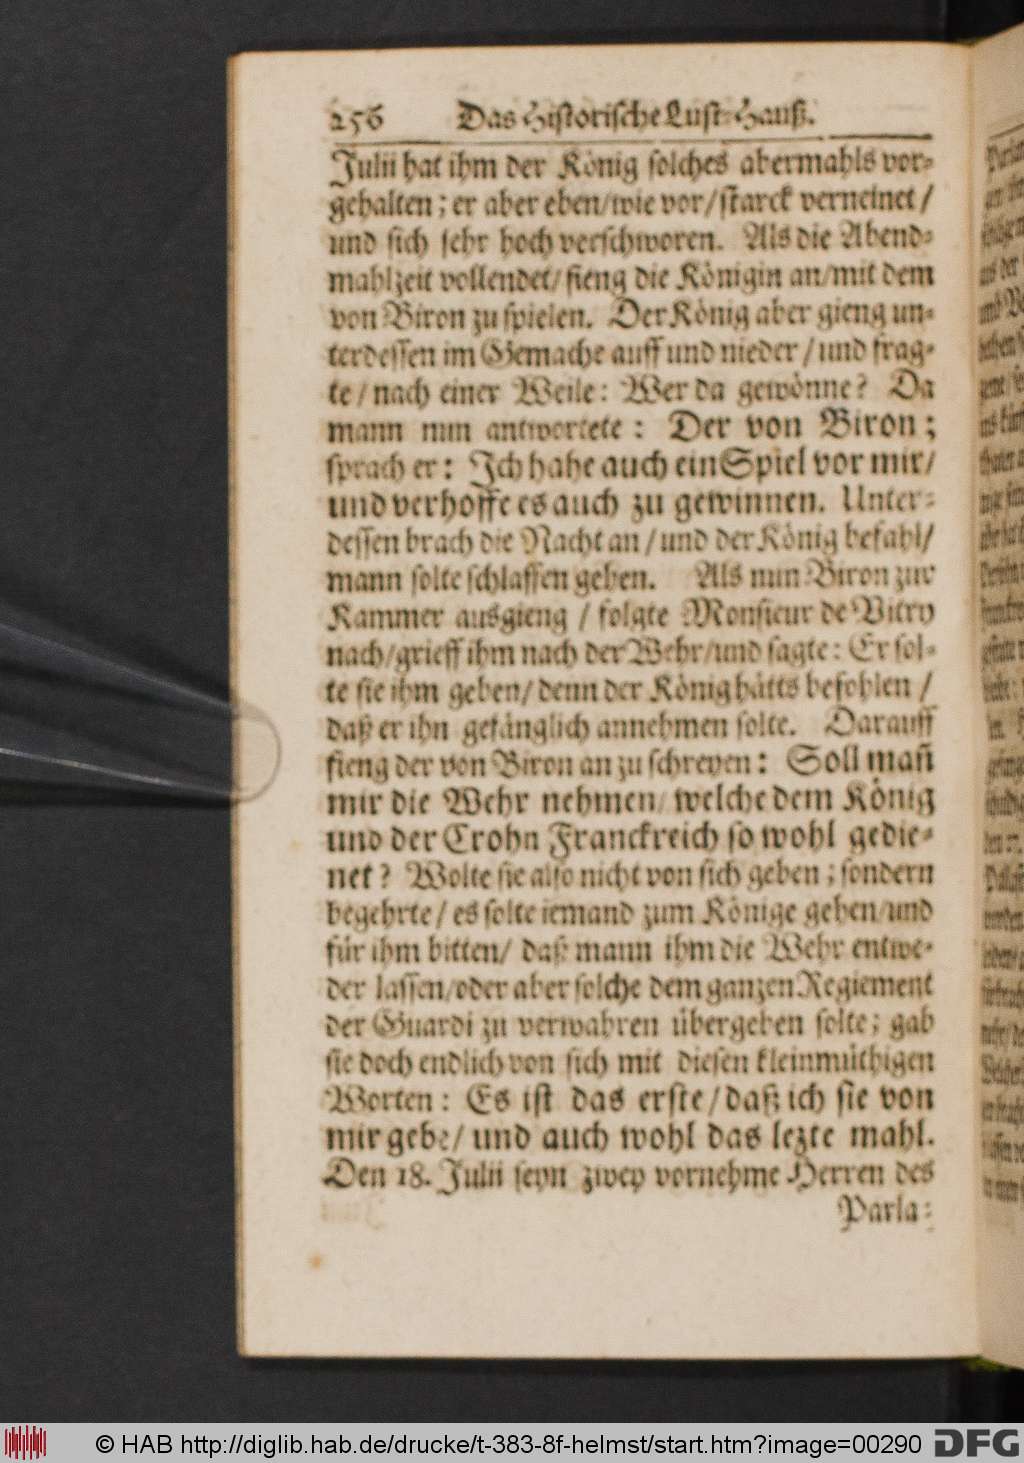 256 Das Historische Lust-Hauß.
Julii hat ihm der König solches abermahls vor-
gehalten; er aber eben/wie vor/starck verneinet/
und sich sehr hoch verschworen. Als die Abend-
mahlzeit vollendet/fieng die Königin an/mit dem
von Biron zu spielen. Der König aber gieng un-
terdessen im Gemache auff und nieder/und frag-
te/nach einer Weile: Wer da gewönne? Da
mann nun antwortete: Der von Biron;
sprach er: Ich habe auch ein Spiel vor mir/
und verhoffe es auch zu gewinnen. Unter-
dessen brach die Nacht an/und der König befahl/
mann solte schlaffen gehen. Als nun Biron zur
Kammer ausgieng/folgte Monsieur de Vitry
nach/grieff ihm nach der Wehr/und sagte: Er sol-
te sie ihm geben/denn der König hätts befohlen/
daß er ihn gefänglich annehmen solte. Darauff
fieng der von Biron an zu schreyen: Soll mañ
mir die Wehr nehmen/welche dem König
und der Crohn Franckreich so wohl gedie-
net? Wolte sie also nicht von sich geben; sondern
begehrte/es solte iemand zum Könige gehen/und
für ihm bitten/daß mann ihm die Wehr entwe-
der lassen/oder aber solche dem ganzen Regiement
der Guardi zu verwahren übergeben solte; gab
sie doch endlich von sich mit diesen kleinmüthigen
Worten: Es ist das erste/daß ich sie von
mir gebe/und auch wohl das lezte mahl.
Den 18. Julii seyn zwey vornehme Herren des
Parla-
© HAB http://diglib.hab.de/drucke/t-383-8f-helmst/start.htm?image=00290 DFG